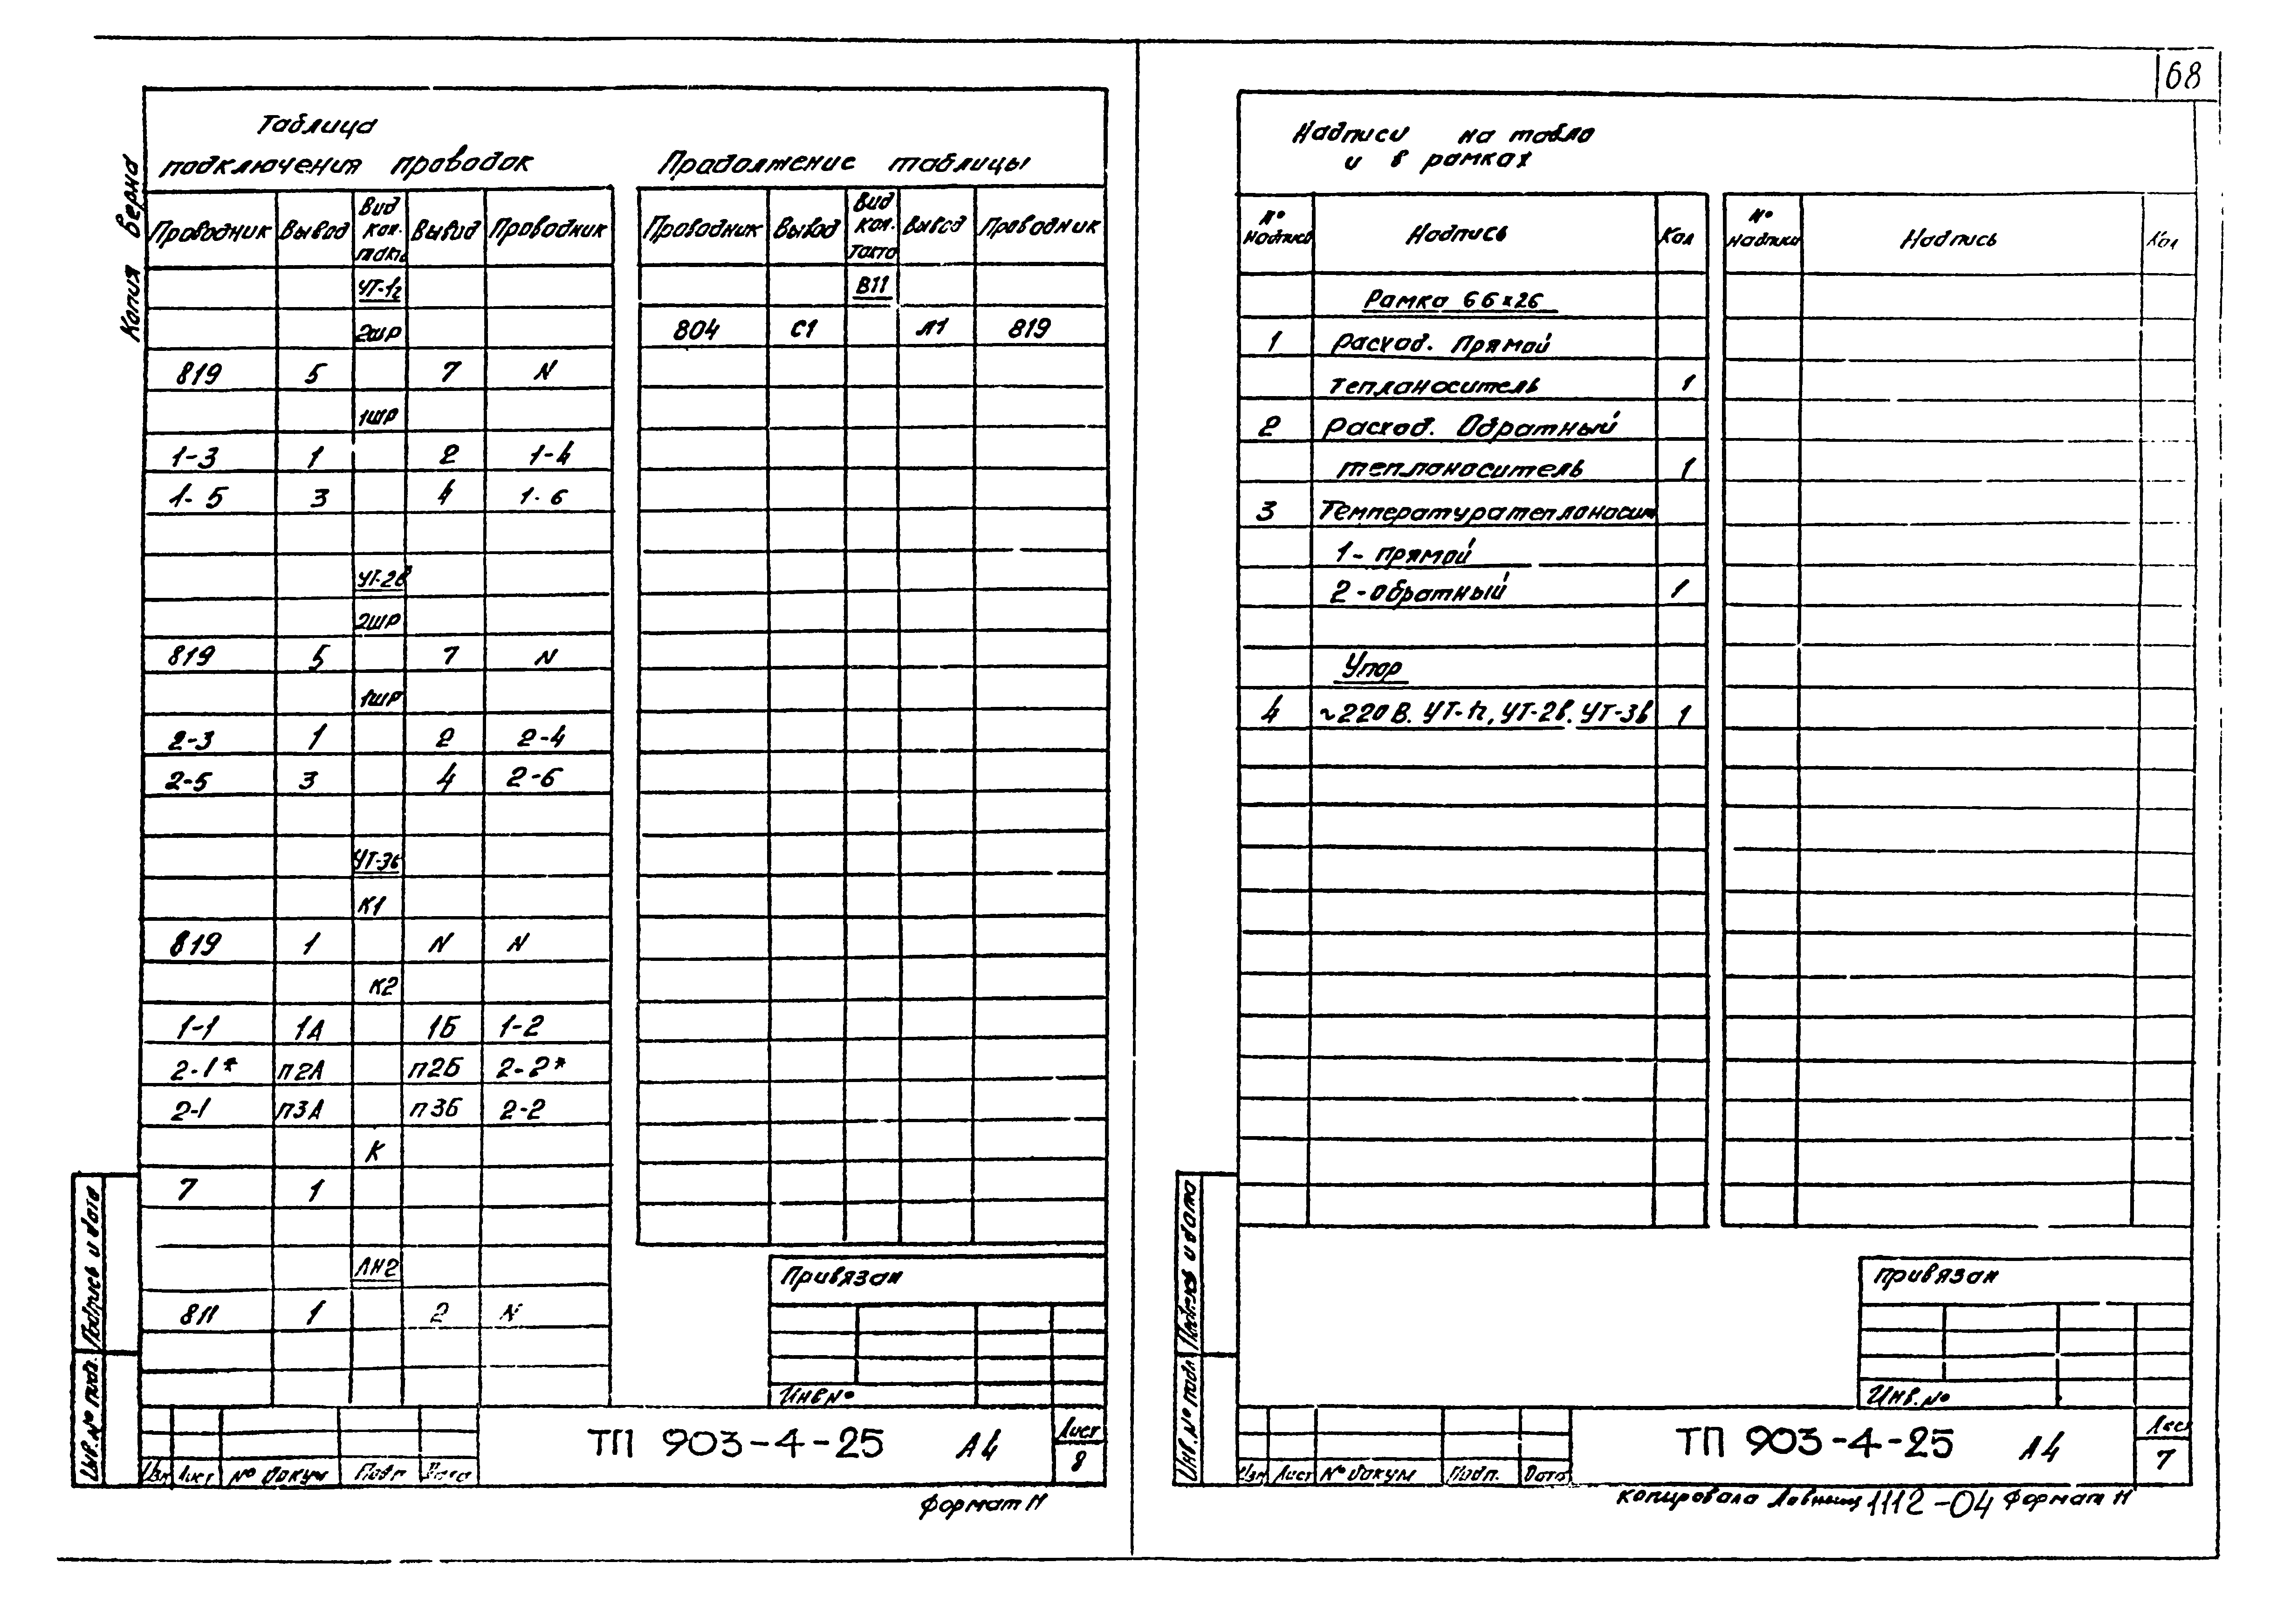 68
Копия Верна
Таблица
подключения проводок
Проводник Вывод Вид кон. такта Вывод Проводник
УТ-1г
2шр
819 5 7 N
1шр
1-3 1 2 1-4
1-5 3 4 1-6
УТ-2в
2шр
819 5 7 N
1шр
2-3 1 2 2-4
2-5 3 4 2-6
УТ-3в
К1
819 1 N N
К2
1-1 1А 1Б 1-2
2-1* п2А п2Б 2-2*
2-1 п3А п3Б 2-2
К
7 1
ЛН2
811 1 2 N
Продолжение таблицы
Проводник Вывод Вид кон. такта Вывод Проводник
В11
804 С1 Л1 819
Привязан
Инв №
Подпись и дата
Инв. № подл.
Изм Лист № докум Подп Дата
ТП 903-4-25 А4
Лист
8
Формат 11
Надписи на табло
и в рамках
№ надписи Надпись Кол № надписи Надпись Кол
Рамка 66х26
1 Расход. Прямой
теплоноситель 1
2 Расход. Обратный
теплоноситель 1
3 Температура теплоносит
1- прямой
2-обратный 1
Упор
4 ~220 В. УТ-1г, УТ-2в. УТ-3в 1
Привязан
Инв. №
Подпись и дата
Инв. № подл
Изм Лист № докум Подп. Дата
ТП 903-4-25 А4
Лист
7
Копировала 1112-04 Формат 11